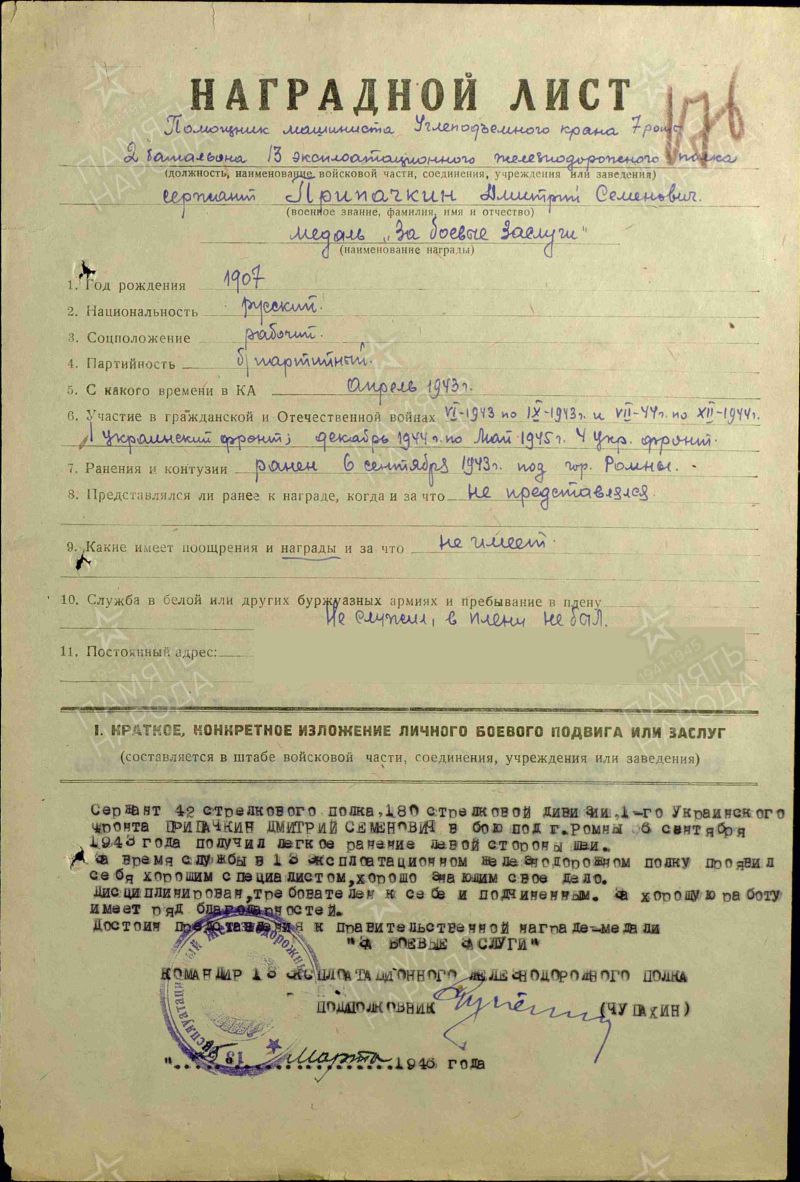 НАГРАДНОЙ ЛИСТ
176
Помощник машиниста Углеподъемного крана 7 роты
2 батальона 13 эксплоатационного железнодорожного полка
(должность, наименование войсковой части, соединения, учреждения или заведения)
сержант Припачкин Дмитрий Семенович.
(военное звание, фамилия, имя и отчество)
медаль „За боевые заслуги"
(наименование награды)
1. Год рождения 1907
2. Национальность русский.
3. Соцположение рабочий.
4. Партийность б/партийный.
5. С какого времени в КА Апрель 1943г.
6. Участие в гражданской и Отечественной войнах VI-1943 по IX-1943г. и VII-44г. по XII-1944г.
1 Украинский фронт; декабрь 1944г. по Май 1945г. 4 Укр. фронт.
7. Ранения и контузии ранен 6 сентября 1943г. под гор. Ромны.
8. Представлялся ли ранее к награде, когда и за что не представлялся.
9. Какие имеет поощрения и награды и за что не имеет.
10. Служба в белой или других буржуазных армиях и пребывание в плену
Не служил, в плену не был.
11. Постоянный адрес:
I. КРАТКОЕ, КОНКРЕТНОЕ ИЗЛОЖЕНИЕ ЛИЧНОГО БОЕВОГО ПОДВИГА ИЛИ ЗАСЛУГ
(составляется в штабе войсковой части, соединения, учреждения или заведения)
Сержант 42 стрелкового полка,180 стрелковой дивизии,1-го Украинского
фронта ПРИПАЧКИН ДМИТРИЙ СЕМЕНОВИЧ в бою под г.Ромны 6 сентября
1943 года получил легкое ранение левой стороны шеи.
За время службы в 13 эксплоатационном железнодорожном полку проявил
себя хорошим специалистом,хорошо знающим свое дело.
Дисциплинирован,требователен к себе и подчиненным. За хорошую работу
имеет ряд благодарностей.
Достоин представления к правительственной награде-медали
"ЗА БОЕВЫЕ ЗАСЛУГИ"
КОМАНДИР 13 ЭКСПЛОАТАЦИОННОГО ЖЕЛЕЗНОДОРОЖНОГО ПОЛКА
ПОДПОЛКОВНИК (ЧУПАХИН)
"25 Марта 1946 года
13
ПАМЯТЬ НАРОДА
1941-1945